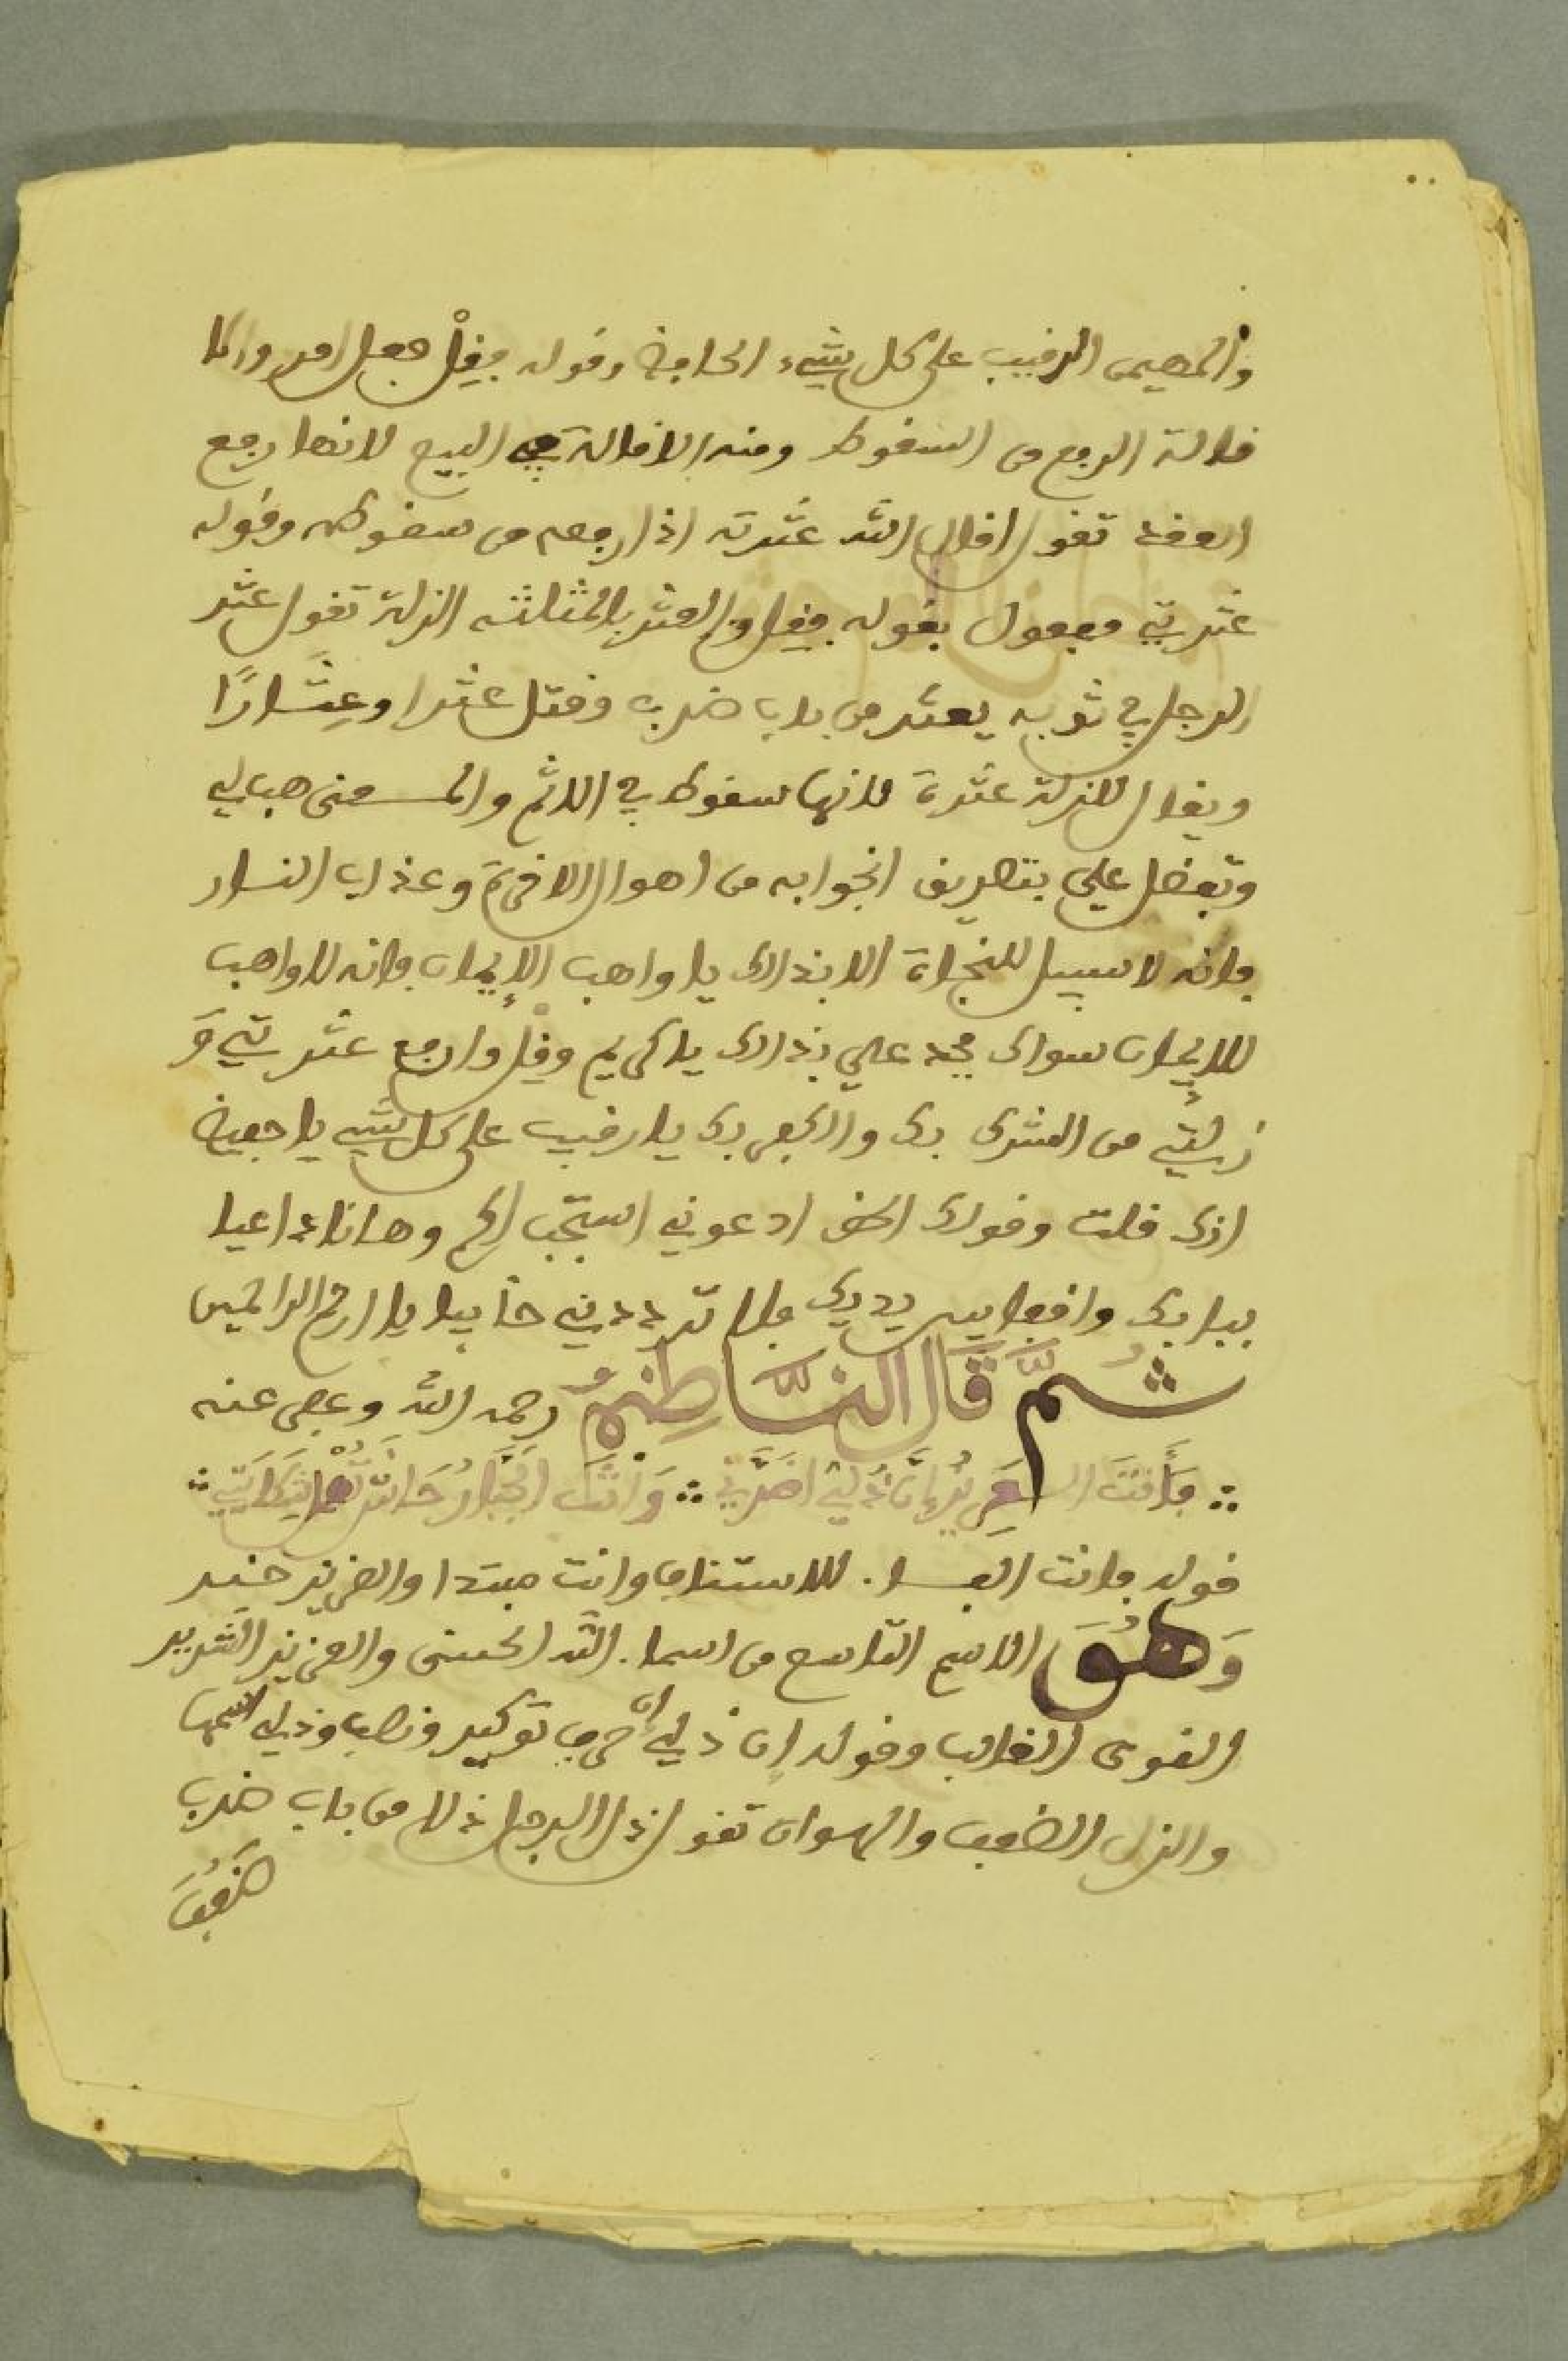 والمهيمن الرقيب على كل شيء الحافظ وقوله فقل فعل امر والا
قالة الرفع من السقوط ومنه الاقالة في البيع لانها رفع
العقد تقول اقال الله عثرته اذا رفعه من سقوطه وقوله
عثرتي مفعول بقوله فقل والعثر بالمثلثة الزلة تقول عثر
الرجل في ثوبه يعثر من باب ضرب وقتل عثرا وعِثَارًا
ويقال للزلة عثرة لانها سقوط في الاثم والمعنى هب لي
وتفضل علي بتصديق انجوا به من اهوال الاخرة وعذاب النار
فانه لا سبيل للنجاة الا بذلك يا واهب الإيمان فانه لا واهب
للإيمان سواك فجد علي بذلك يا كريم وقِلْ وارفع عثرتي وَ
زلتي من الشرك بك والكفر بك يا رقيب على كل شيء يا حفيظ
انك قلت وقولك الحق ادعوني استجب لكم وها انا داعيا
ببابك واقفا بين يديك فلا تردني خائبا يا ارحم الراحمين
ثُمَّ قَالَ النَّاظِمُ رحمه الله وعفى عنه
فَأَنْتَ العَزِيزُ إِنَّ ذُلِّي اضَرَّنِي وَأَنْتَ الجَبَّارُ
قوله فانت الفاء للاستئناف وانت مبتدا والعزيز خبر
وَهُوَ الاسم التاسع من اسماء الله الحسنى والعزيز الشديد
القوي الغالب وقوله إن ذلي إن حرف توكيد ونصب وذلي اسمها
والذل الضعف والهوان تقول ذل الرجل ذلا من باب ضرب
ضَعُفَ